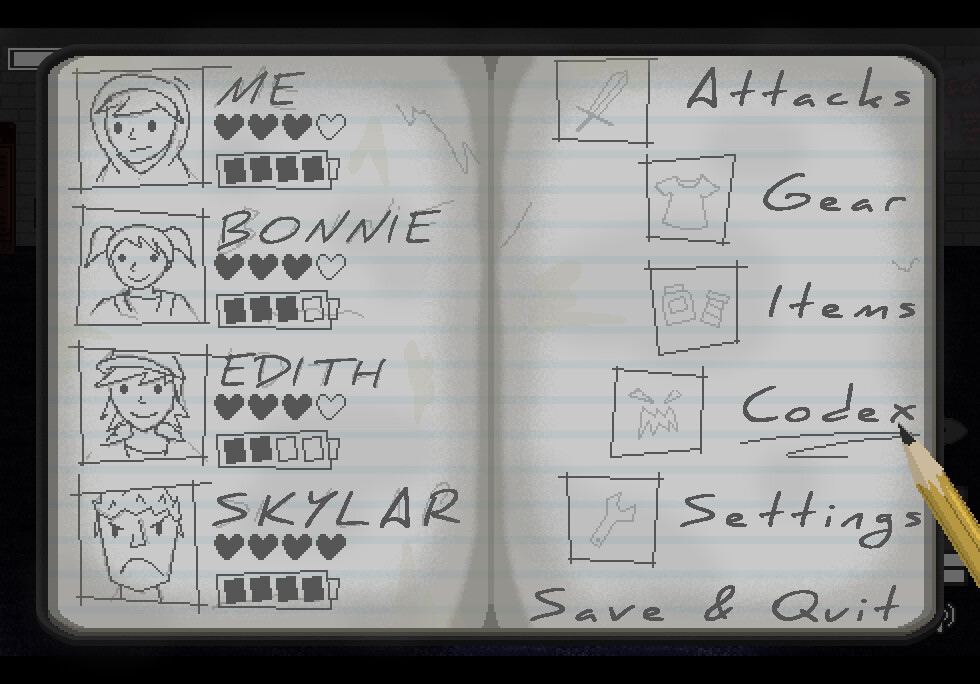 ME
BONNIE
EDITH
SKYLAR
Attacks
Gear
Items
Codex
Settings
Save & Quit